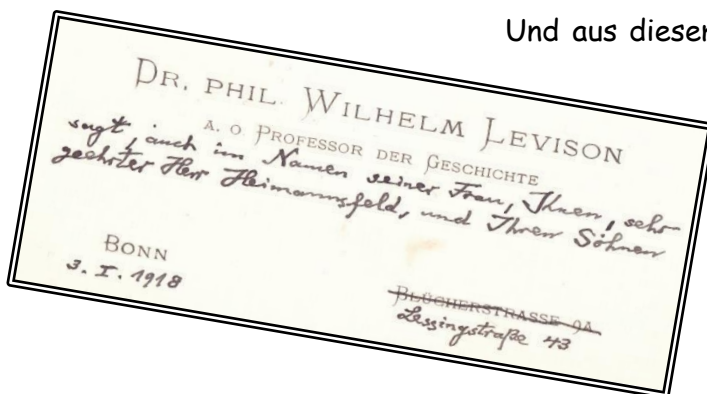 Und aus dieser
DR. PHIL. WILHELM LEVISON
A. O. PROFESSOR DER GESCHICHTE
sagt, auch im Namen seiner Frau, Ihnen, sehr
geehrter Herr Heimannsfeld, und Ihren Söhnen
BONN
3. I. 1918
BLÜCHERSTRASSE 9A
Lessingstraße 43